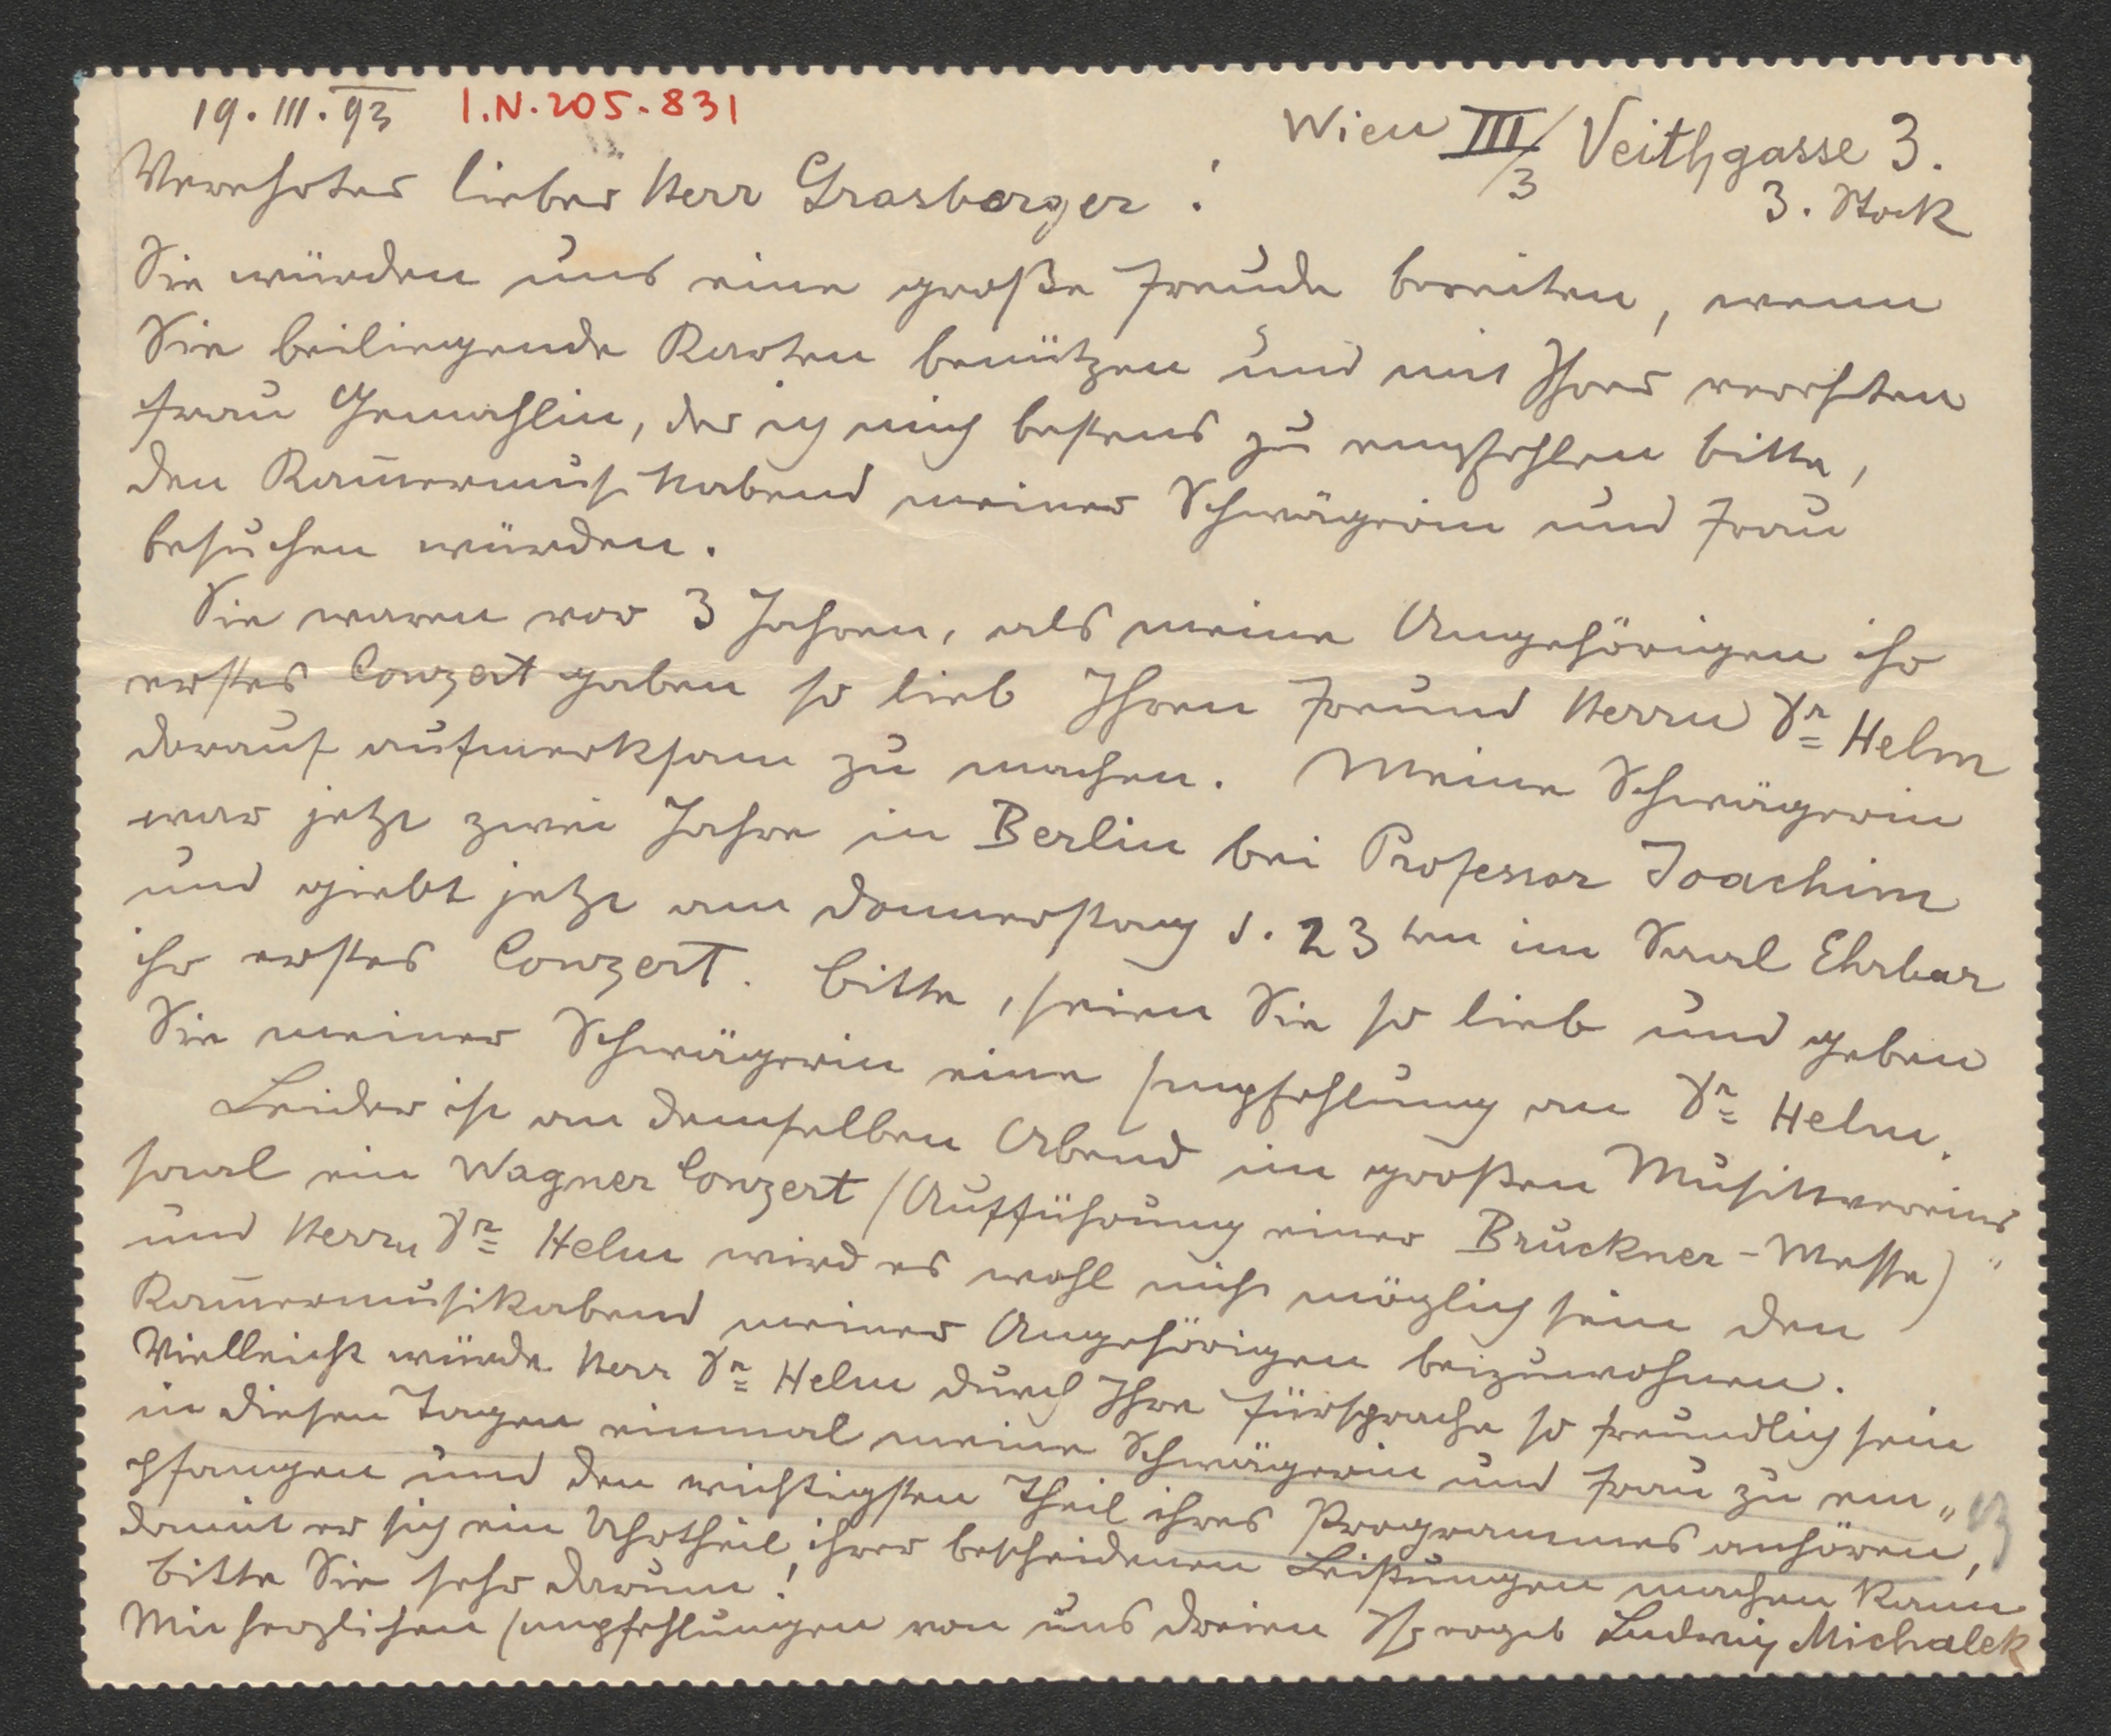 19. III. 93 I.N. 205.831
Wien III/3 Veithgasse 3.
3. Stock
Verehrter lieber Herr Grasberger!
Sie würden uns eine große Freude bereiten, wenn
Sie beiliegende Karten benützen und mit Ihrer verehrten
Frau Gemahlin, der ich mich bestens zu empfehlen bitte,
den Kam̅ermusikabend meiner Schwägerin und Frau
besuchen würden.
Sie waren vor 3 Jahren, als meine Angehörigen ihr
erstes Conzert gaben so lieb Ihren Freund Herrn Dr Helm
darauf aufmerksam zu machen. Meine Schwägerin
war jetzt zwei Jahre in Berlin bei Professor Joachim
und giebt jetzt am Donnerstag d. 23ten im Saal Ehrbar
ihr erstes Conzert. Bitte, seien Sie so lieb und geben
Sie meiner Schwägerin eine Empfehlung an Dr Helm.
Leider ist an demselben Abend im großen Musikvereins„
saal ein Wagner Conzert (Aufführung einer Bruckner-Messe)
und Herrn Dr Helm wird es wohl nicht möglich sein den
Kam̅ermusikabend meiner Angehörigen beizuwohnen.
Vielleicht würde Herr Dr Helm durch Ihre Fürsprache so freundlich sein
in diesen Tagen einmal meine Schwägerin und Frau zu em„
pfangen und den wichtigsten Theil ihres Programmes anhören,
damit er sich ein Uhrtheil ihrer bescheidenen Leistungen machen kann
bitte Sie sehr darum!
Mit herzlichen Empfehlungen von uns dreien Ihr ergeb Ludwig Michalek